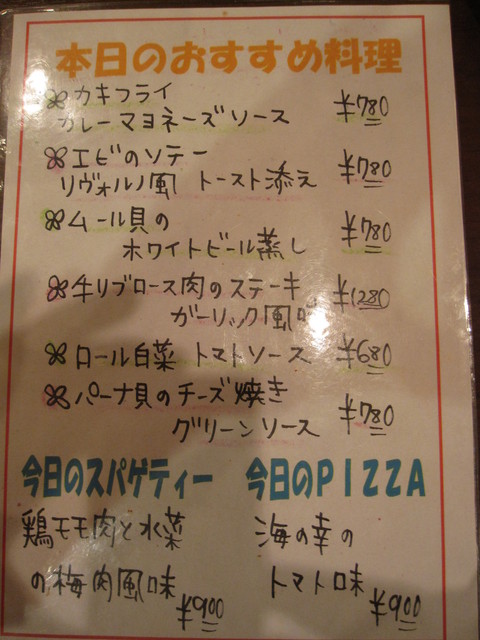 本日のおすすめ料理
カキフライ
カレーマヨネーズソース ¥780
エビのソテー
リヴォルノ風 トースト添え ¥780
ムール貝の
ホワイトビール蒸し ¥780
牛リブロース肉のステーキ
ガーリック風味 ¥1280
ロール白菜 トマトソース ¥680
パーナ貝のチーズ焼き
グリーンソース ¥780
今日のスパゲティー
鶏モモ肉と水菜
の梅肉風味
¥900
今日のPIZZA
海の幸の
トマト味
¥900